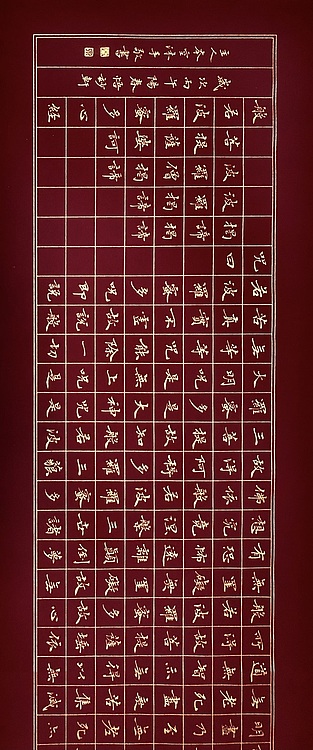 明盡乃至無老死亦
無老死盡無苦集滅
道無智亦無得以無
所得故菩提薩埵依
般若波羅蜜多故心
無罣礙無罣礙故無
有恐怖遠離顛倒夢
想究竟涅槃三世諸
佛依般若波羅蜜多
故得阿耨多羅三藐
三菩提故知般若波
羅蜜多是大神咒是
大明咒是無上咒是
無等等咒能除一切
苦真實不虛故說般
若波羅蜜多咒即說
咒曰
揭諦揭諦
波羅揭諦
波羅僧揭諦
菩提薩婆訶
般若波羅蜜多心經
歲次丙午陽春悟妙軒
主人李雲沫手敬書